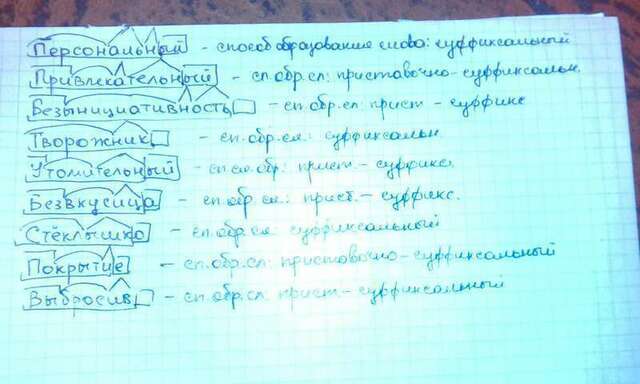 Персональный - способ образования слова: суффиксальный
Привлекательный - сп.обр.сл: приставочно-суффиксальн.
Безынициативность - сп.обр.сл: прист - суффикс
Творожник - сп.обр.сл.: суффиксальн.
Утомительный - сп сл.обр: прист.- суффикс.
Безвкусица - сп.обр.сл.: прист.- суффикс.
Стёклышко - сп.обр.сл: суффиксальный
Покрытие - сп.обр.сл: приставочно-суффиксальный
Выбросив - сп.обр.сл. прист-суффиксальный